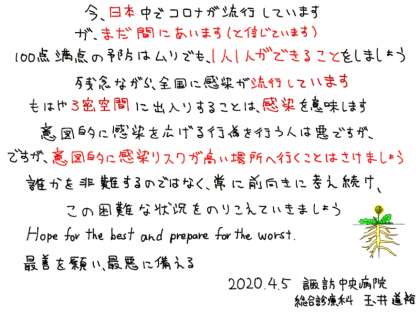 今、日本中でコロナが流行しています
が、まだ間にあいます(と信じています)
100点満点の予防はムリでも、1人1人ができることをしましょう
残念ながら、全国に感染が流行しています
もはや3密空間に出入りすることは、感染を意味します
意図的に感染を広げる行為を行う人は悪ですが、
ですが、意図的に感染リスクが高い場所へ行くことはさけましょう
誰かを非難するのではなく、常に前向きに考え続け、
この困難な状況をのりこえていきましょう
Hope for the best and prepare for the worst.
最善を願い、最悪に備える
2020.4.5 諏訪中央病院
総合診療科 玉井道裕